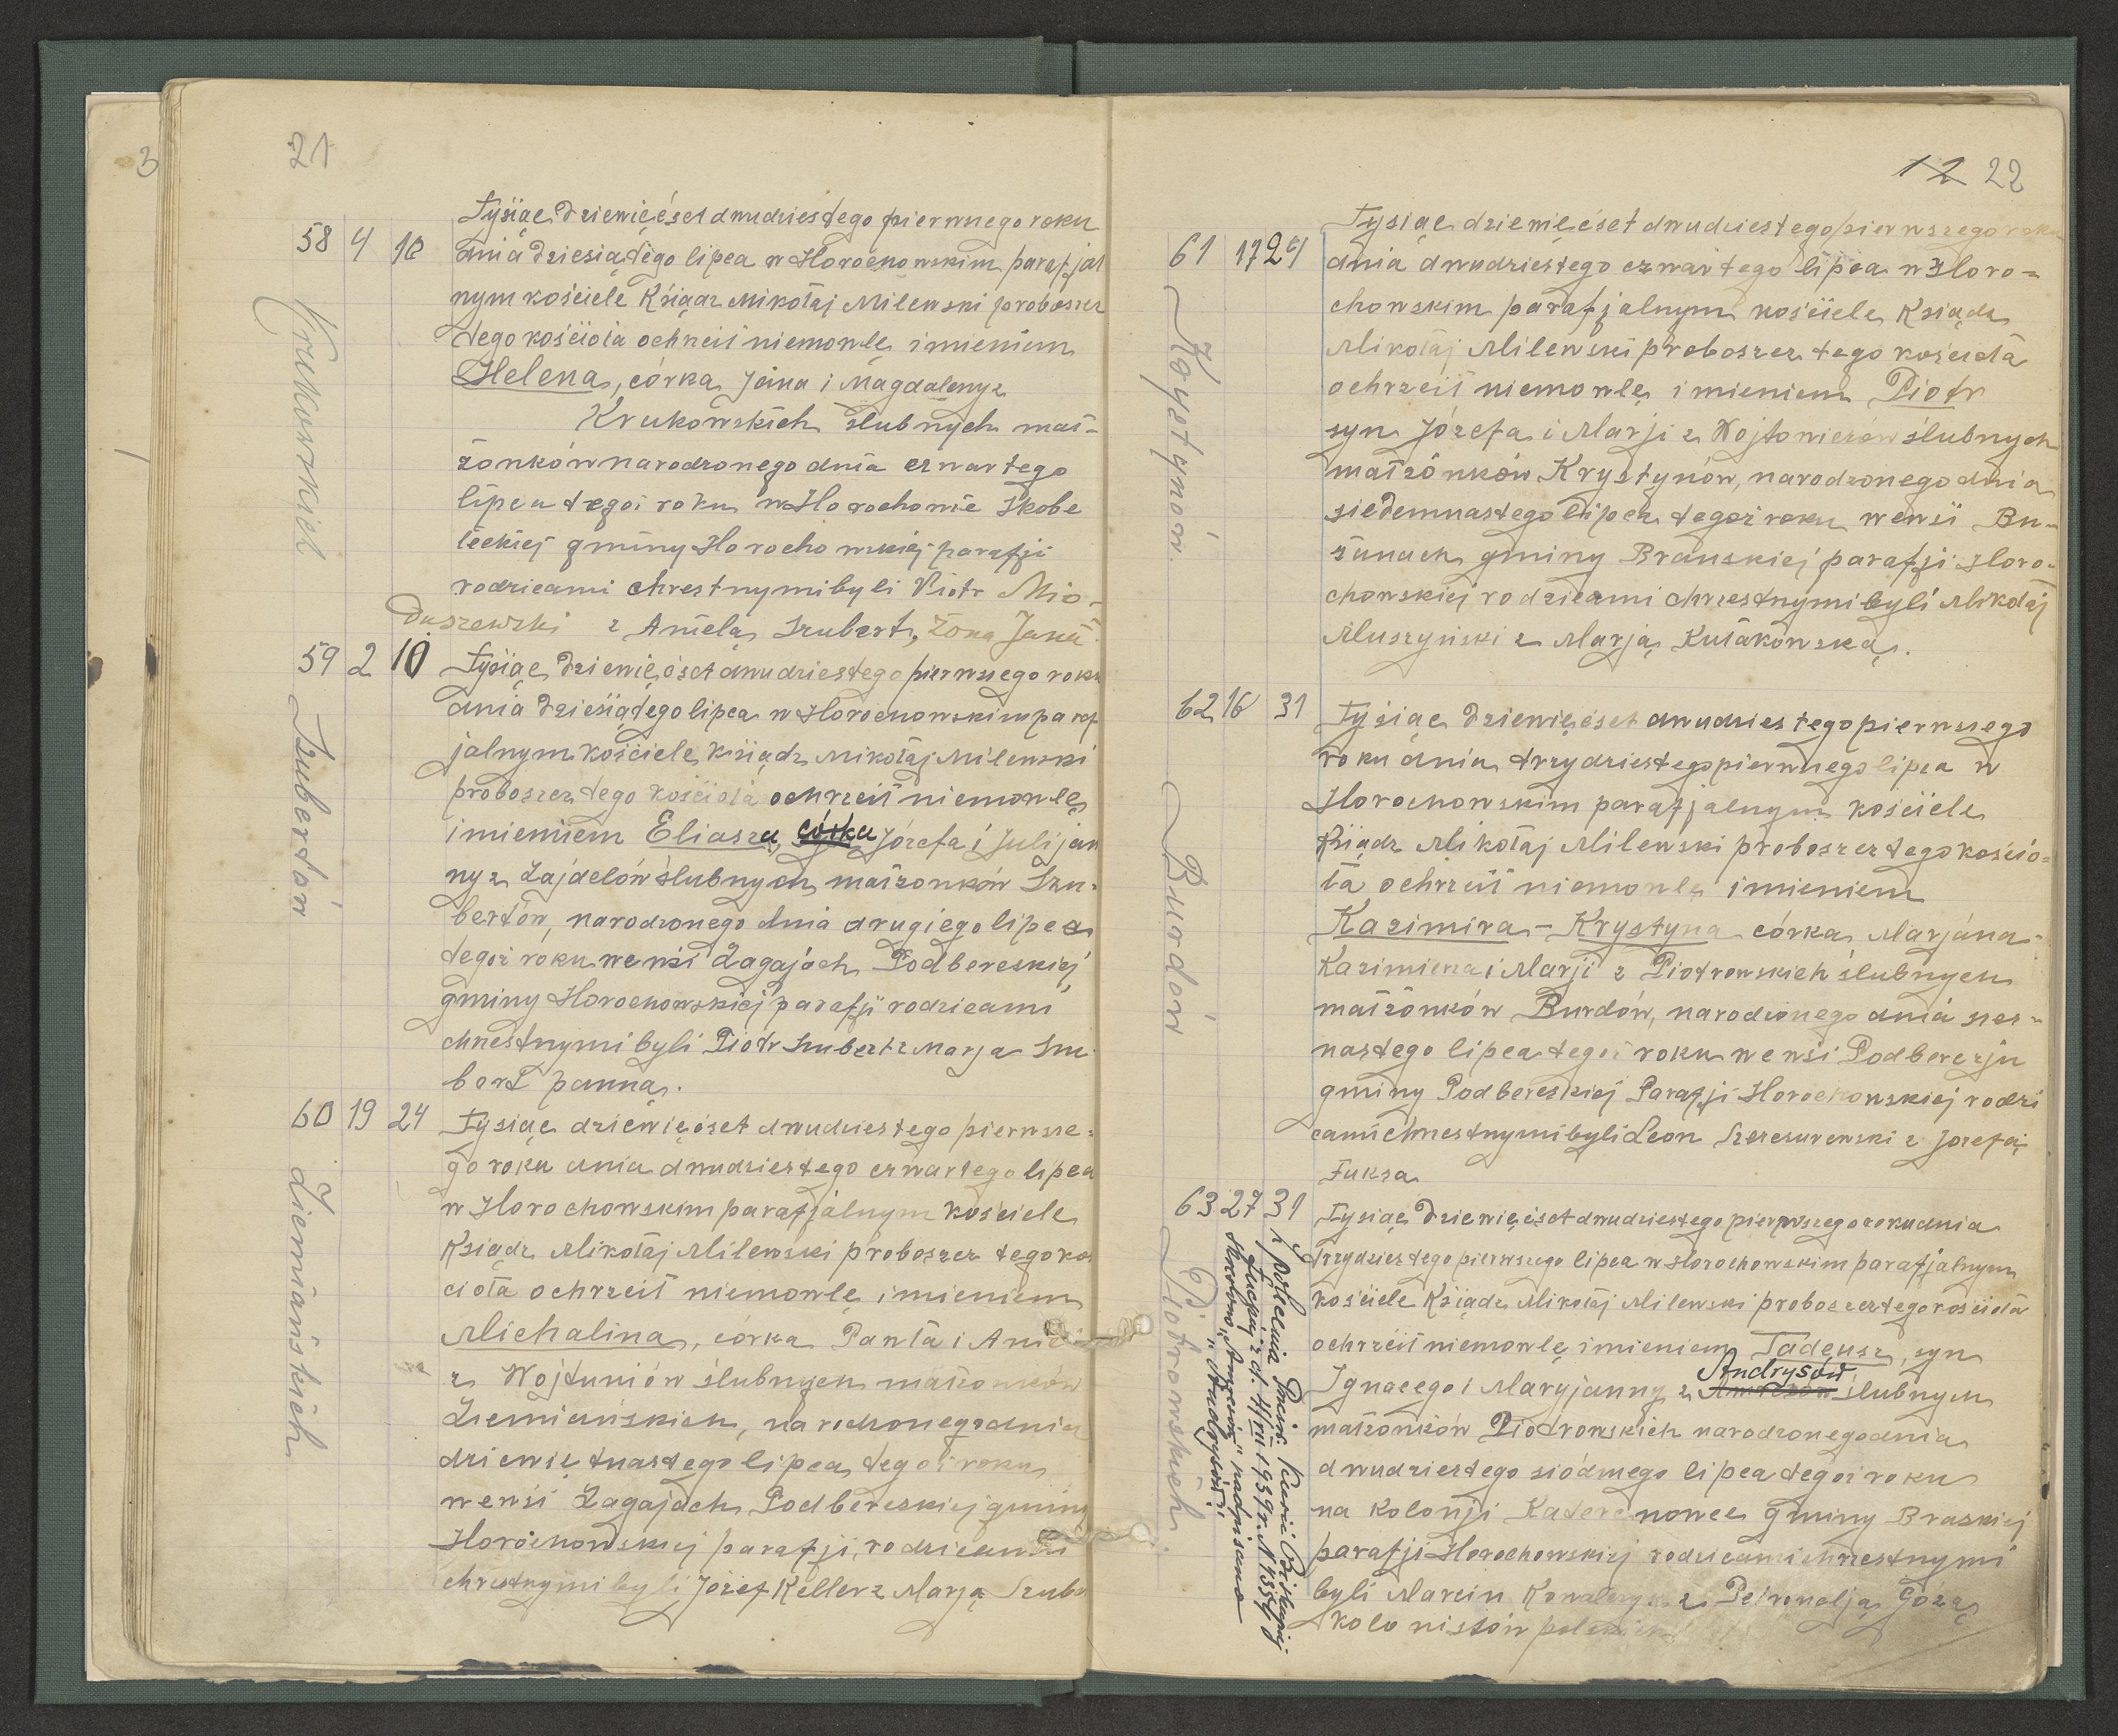 3
21
58 4 10
Krukowskich
Tysiąc dziewięćset dwudziestego pierwszego roku
dnia dziesiątego lipca w Horochowskim parafjal
nym kościele Ksiądz Mikołaj Milewski proboszcz
tego kościoła ochrzcił niemowlę imieniem
Helena, córka Jana i Magdaleny z
Krukowskich ślubnych mał-
żonków narodzonego dnia czwartego
lipca tegoż roku w Horochowie Skobe
łeckiej gminy Horochowskiej parafji
rodzicami chrestnymi byli Piotr Mio-
duszewski z Anielą Szubert, żona Jana
59 2 10
Szubertów
Tysiąc dziewięćset dwudziestego pierwszego roku
dnia dziesiątego lipca w Horochowskim paraf
jalnym kościele ksiądz Mikołaj Milewski
proboszcz tego kościoła ochrzcił niemowlę
imieniem Eliasza, córka Józefa i Julijan
ny z Zajdelów ślubnych małżonków Szu-
bertów, narodzonego dnia drugiego lipca
tegoż roku we wsi Zagajach Podbereskiej
gminy Horochowskiej parafji rodzicami
chrestnymi byli Piotr Szubert z Marja Szu
bert panną.
60 19 24
Ziemiańskich
Tysiąc dziewięćset dwudziestego pierwsze-
go roku dnia dwudziestego czwartego lipca
w Horochowskim parafjalnym kościele
Ksiądz Mikołaj Milewski proboszcz tego koś
cioła ochrzcił niemowlę imieniem
Michalina, córka Pawła i
z Wojtuniów ślubnych małżonków
Ziemiańskich, narodzonego dnia
dziewiętnastego lipca tegoż roku
we wsi Zagajach Podbereskiej gminy
Horochowskiej parafji, rodzicami
chrestnymi byli Józef Keller z Marją Szub
12 22
61 17 24
Krystynów.
Tysiąc dziewięćset dwudziestego pierwszego roku
dnia dwudziestego czwartego lipca w Horo-
chowskim parafjalnym kościele Ksiądz
Mikołaj Milewski proboszcz tego kościoła
ochrzcił niemowlę imieniem Piotr
syn Józefa i Marji z Wojtowiczów ślubnych
małżonków Krystynów, narodzonego dnia
siedemnastego lipca tegoż roku we wsi Bu-
żanach gminy Branskiej parafji Horo-
chowskiej rodzicami chrzestnymi byli Mikołaj
Muszyński z Marją Kułakowską.
62 16 31
Burdów
Tysiąc dziewięćset dwudziestego pierwszego
roku dnia trzydziestego pierwszego lipca w
Horochowskim parafjalnym kościele
Ksiądz Mikołaj Milewski proboszcz tego kościo-
ła ochrzcił niemowlę imieniem
Kazimira-Krystyna córka Marjana-
Kazimierza i Marji z Piotrowskich ślubnych
małżonków Burdów, narodzonego dnia szes-
nastego lipca tegoż roku we wsi Podberezju
gminy Podbereskiej Parafji Horochowskiej rodzi
cami chrestnymi byli Leon z Jozefą
Fuksa
63 27 31
Piotrowskich.
Z polecenia Kurii Biskupiej
Łuckiej z d. 4/VII 1939 r. N 1354
skreślono „ " nadpisano
„Andrysów".
Tysiąc dziewięćset dwudziestego pierwszego roku dnia
trzydziestego pierwszego lipca w Horochowskim parafjalnym
kościele Ksiądz Mikołaj Milewski proboszcz tego kościoła
ochrzcił niemowlę imieniem Tadeusz, syn
Andrysów
Ignacego i Maryjanny z ślubnych
małżonków Piotrowskich narodzonego dnia
dwudziestego siódmego lipca tegoż roku
na kolonji gminy Braskiej
parafji Horochowskiej rodzicami chrzestnymi
byli Marcin z Petronelją Górą
kolonistów